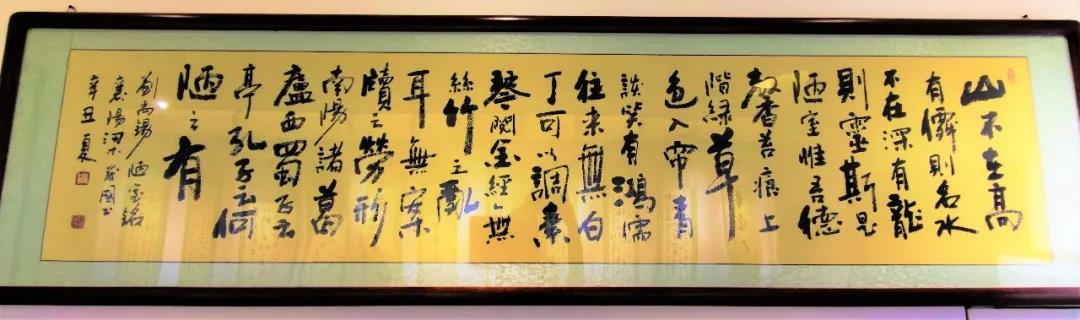 山不在高
有僊則名水
不在深有龍
則靈斯是
陋室惟吾德
馨苔痕上
階緑草
色入帘青
談笑有鴻儒
往来無白
丁可以調素
琴閲金經無
絲竹之亂
耳無案
牘之勞形
南陽諸葛
廬西蜀子云
亭孔子云何
陋之有
劉禹錫陋室銘
襄陽梁國书
辛丑夏